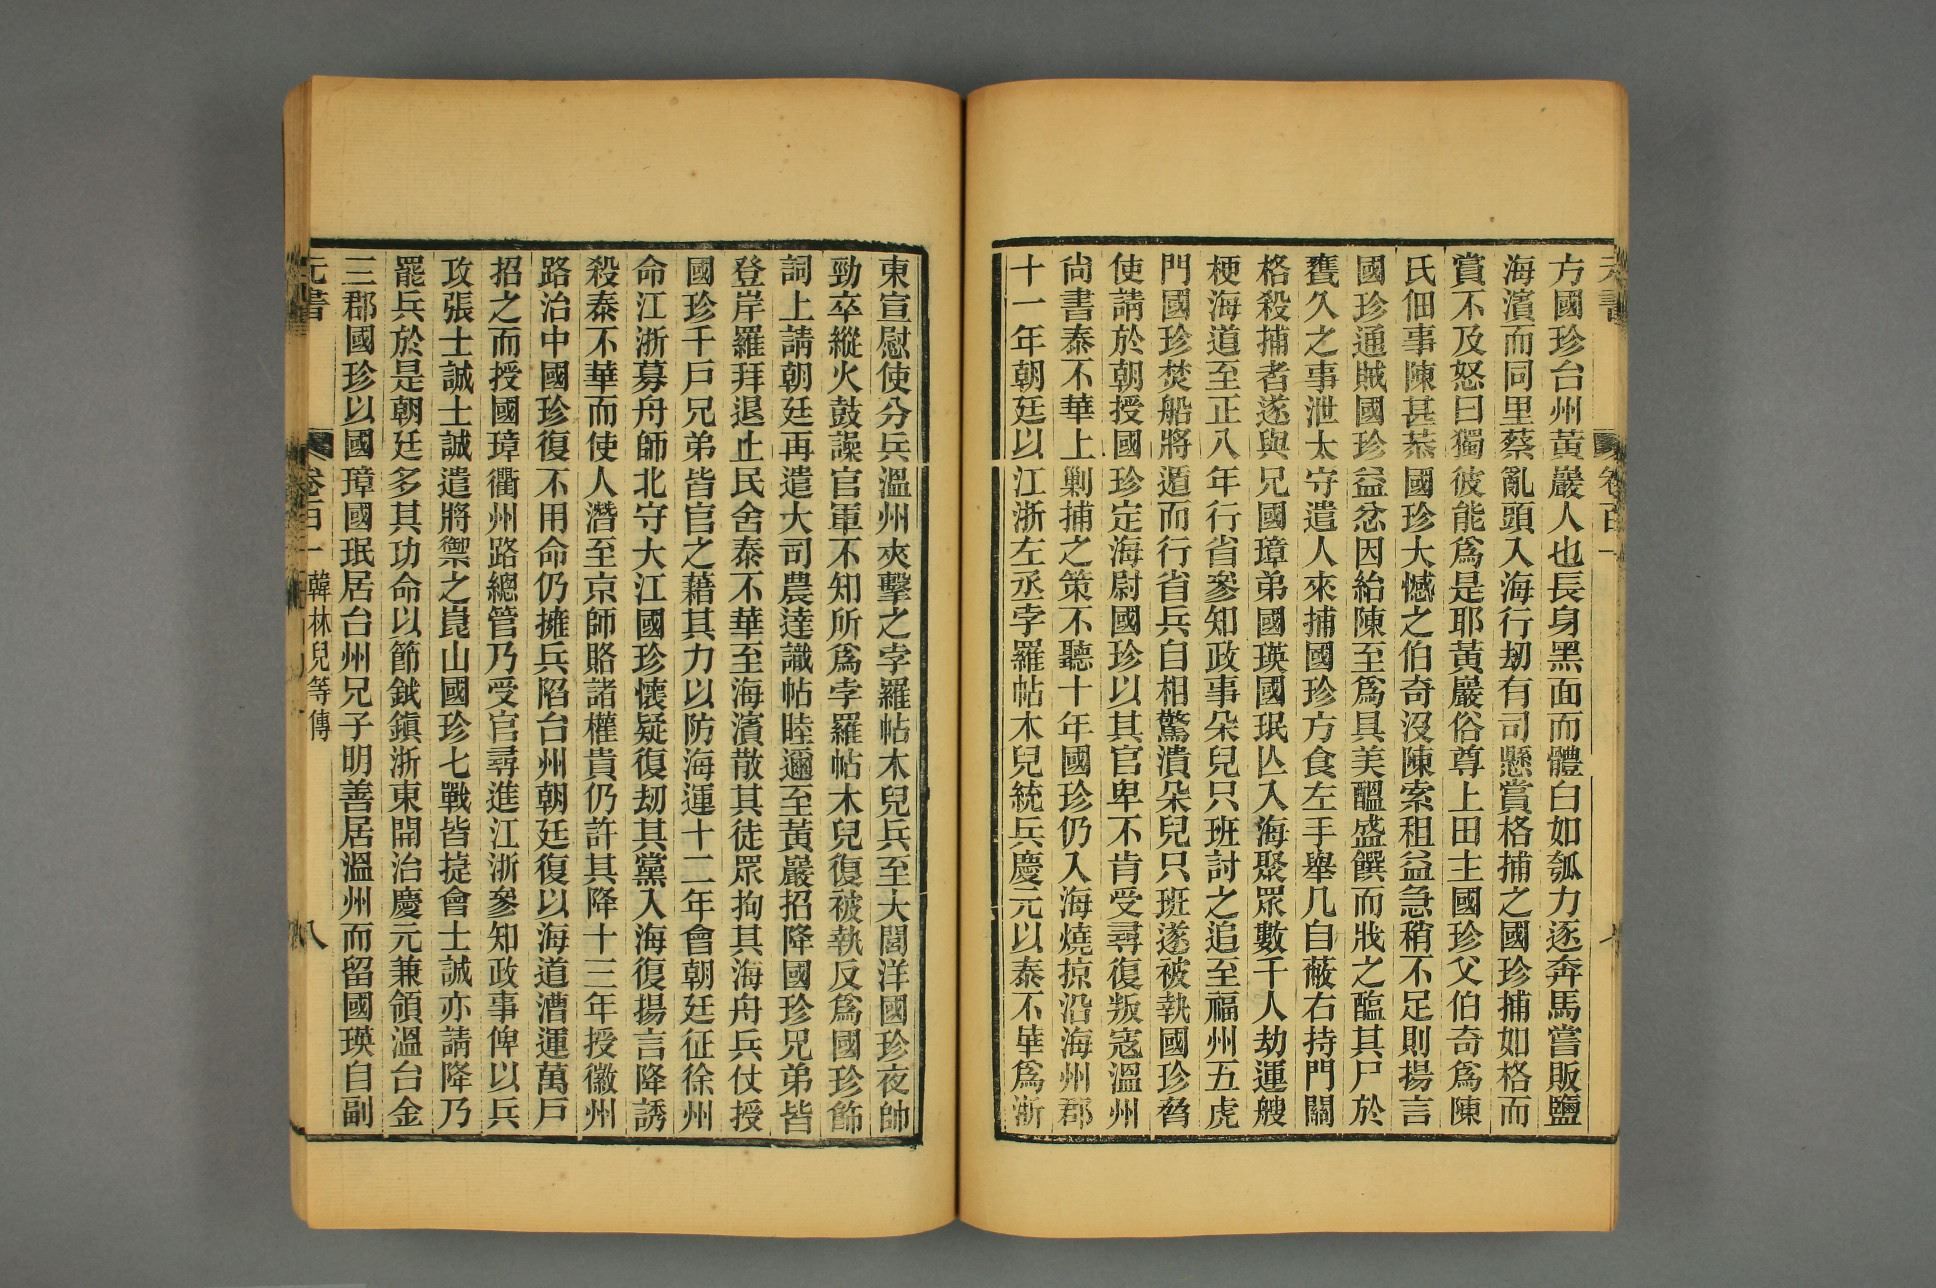 方國珍台州黃巖人也長身黑面而體白如瓠力逐奔馬嘗販鹽
海濱而同里蔡亂頭入海行刼有司懸賞格捕之國珍捕如格而
賞不及怒曰獨彼能爲是耶黃巖俗尊上田主國珍父伯奇爲陳
氏佃事陳甚恭國珍大憾之伯奇沒陳索租益急稍不足則揚言
國珍通賊國珍益忿因紿陳至爲具美醞盛饌而戕之醢其尸於
甕久之事泄太守遣人來捕國珍方食左手舉几自蔽右持門關
格殺捕者遂與兄國璋弟國瑛國珉亾入海聚眾數千人劫運艘
梗海道至正八年行省參知政事朵兒只班討之追至福州五虎
門國珍焚船將遁而行省兵自相驚潰朵兒只班遂被執國珍脅
使請於朝授國珍定海尉國珍以其官卑不肯受尋復叛寇溫州
尙書泰不華上剿捕之策不聽十年國珍仍入海燒掠沿海州郡
十一年朝廷以江浙左丞孛羅帖木兒統兵慶元以泰不華爲浙
東宣慰使分兵溫州夾擊之孛羅帖木兒兵至大閭洋國珍夜帥
勁卒縱火鼓譟官軍不知所爲孛羅帖木兒復被執反爲國珍飾
詞上請朝廷再遣大司農達識帖睦邇至黃巖招降國珍兄弟皆
登岸羅拜退止民舍泰不華至海濱散其徒眾拘其海舟兵仗授
國珍千戶兄弟皆官之藉其力以防海運十二年會朝廷征徐州
命江浙募舟師北守大江國珍懷疑復刼其黨入海復揚言降誘
殺泰不華而使人潛至京師賂諸權貴仍許其降十三年授徽州
路治中國珍復不用命仍擁兵陷台州朝廷復以海道漕運萬戶
招之而授國璋衢州路總管乃受官尋進江浙參知政事俾以兵
攻張士誠士誠遣將禦之崑山國珍七戰皆捷會士誠亦請降乃
罷兵於是朝廷多其功命以節鉞鎭浙東開治慶元兼領溫台金
三郡國珍以國璋國珉居台州兄子明善居溫州而留國瑛自副
元書 卷百一 韓林兒等傳 八